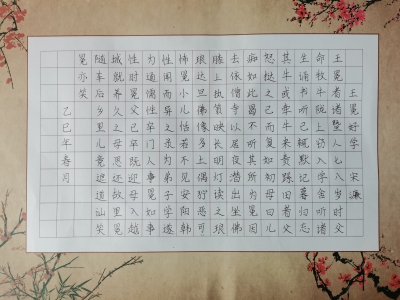 王冕好学 宋濂
王冕者诸暨人七八岁时父
命牧牛陇上窃入学舍听诸
生诵书听已辄默记暮归忘
其牛或牵牛来责蹊田者父
怒挞之已而复如初母曰儿
痴如此曷不听其所为冕因
去依僧寺以居夜潜出坐佛
膝上执策映长明灯读之琅
琅达旦佛像多土偶狞恶可
怖冕小儿恬若不见安阳韩
性闻而异之录为弟子学遂
为通儒性卒门人事冕如事
性时冕父已卒即迎母入越
城就养久之母思还故里冕
随车后乡里儿竟遮道讪笑
冕亦笑
乙巳年春月